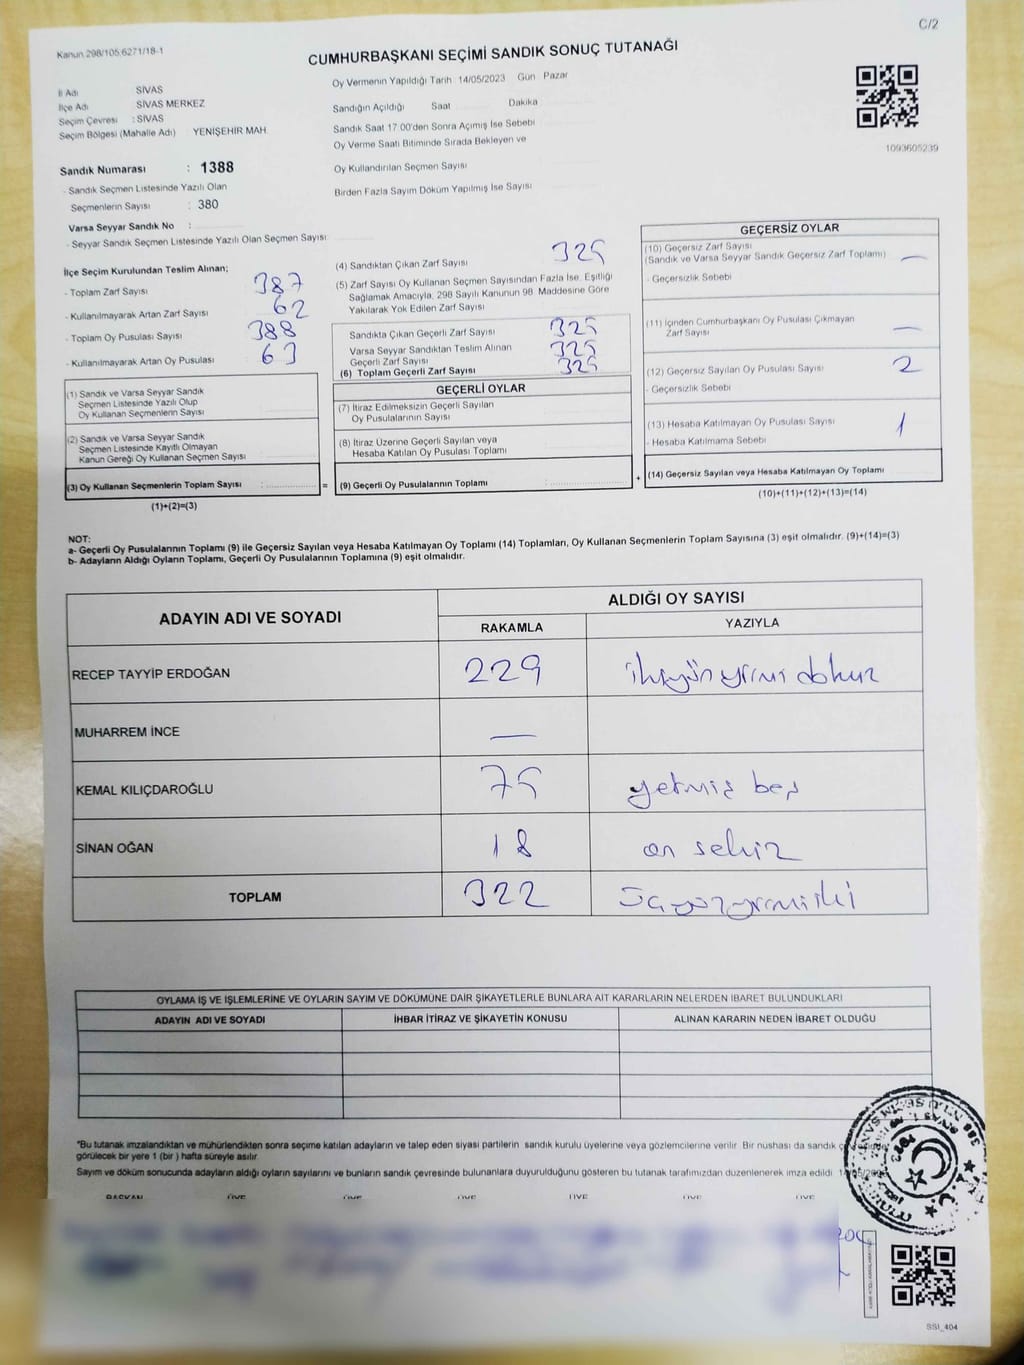 C/2
Kanun 298/105,6271/18-1
CUMHURBAŞKANI SEÇİMİ SANDIK SONUÇ TUTANAĞI
İl Adı SİVAS
İlçe Adı SİVAS MERKEZ
Seçim Çevresi : SİVAS
Seçim Bölgesi (Mahalle Adı) YENİŞEHİR MAH.
Sandık Numarası : 1388
- Sandık Seçmen Listesinde Yazılı Olan
Seçmenlerin Sayısı : 380
Varsa Seyyar Sandık No :
- Seyyar Sandık Seçmen Listesinde Yazılı Olan Seçmen Sayısı
Oy Vermenin Yapıldığı Tarih 14/05/2023 Gün Pazar
Sandığın Açıldığı Saat Dakika
Sandık Saat 17:00'den Sonra Açımış İse Sebebi
Oy Verme Saati Bitiminde Sırada Bekleyen ve
Oy Kullandırılan Seçmen Sayısı
Birden Fazla Sayım Döküm Yapılmış İse Sayısı
1093605239
İlçe Seçim Kurulundan Teslim Alınan;
- Toplam Zarf Sayısı 387
- Kullanılmayarak Artan Zarf Sayısı 62
- Toplam Oy Pusulası Sayısı 388
- Kullanılmayarak Artan Oy Pusulası 63
(1) Sandık ve Varsa Seyyar Sandık
Seçmen Listesinde Yazılı Olup
Oy Kullanan Seçmenlerin Sayısı
(2) Sandık ve Varsa Seyyar Sandık
Seçmen Listesinde Kayıtlı Olmayan
Kanun Gereği Oy Kullanan Seçmen Sayısı
(3) Oy Kullanan Seçmenlerin Toplam Sayısı :
(1)+(2)=(3)
(4) Sandıktan Çıkan Zarf Sayısı 325
(5) Zarf Sayısı Oy Kullanan Seçmen Sayısından Fazla İse, Eşitliği
Sağlamak Amacıyla, 298 Sayılı Kanunun 98. Maddesine Göre
Yakılarak Yok Edilen Zarf Sayısı
Sandıkta Çıkan Geçerli Zarf Sayısı 325
Varsa Seyyar Sandıktan Teslim Alınan 325
Geçerli Zarf Sayısı
(6) Toplam Geçerli Zarf Sayısı 325
GEÇERLİ OYLAR
(7) İtiraz Edilmeksizin Geçerli Sayılan
Oy Pusulalarının Sayısı
(8) İtiraz Üzerine Geçerli Sayılan veya
Hesaba Katılan Oy Pusulası Toplamı
= (9) Geçerli Oy Pusulalarının Toplamı : +
GEÇERSİZ OYLAR
(10) Geçersiz Zarf Sayısı
(Sandık ve Varsa Seyyar Sandık Geçersiz Zarf Toplamı) —
- Geçersizlik Sebebi
(11) İçinden Cumhurbaşkanı Oy Pusulası Çıkmayan
Zarf Sayısı —
(12) Geçersiz Sayılan Oy Pusulası Sayısı 2
- Geçersizlik Sebebi
(13) Hesaba Katılmayan Oy Pusulası Sayısı 1
- Hesaba Katılmama Sebebi
(14) Geçersiz Sayılan veya Hesaba Katılmayan Oy Toplamı
(10)+(11)+(12)+(13)=(14)
NOT:
a- Geçerli Oy Pusulalarının Toplamı (9) ile Geçersiz Sayılan veya Hesaba Katılmayan Oy Toplamı (14) Toplamları, Oy Kullanan Seçmenlerin Toplam Sayısına (3) eşit olmalıdır. (9)+(14)=(3)
b- Adayların Aldığı Oyların Toplamı, Geçerli Oy Pusulalarının Toplamına (9) eşit olmalıdır.
ADAYIN ADI VE SOYADI ALDIĞI OY SAYISI
RAKAMLA YAZIYLA
RECEP TAYYİP ERDOĞAN 229 ikiyüz yirmi dokuz
MUHARREM İNCE —
KEMAL KILIÇDAROĞLU 75 yetmiş beş
SİNAN OĞAN 18 on sekiz
TOPLAM 322 üçyüzyirmiiki
OYLAMA İŞ VE İŞLEMLERİNE VE OYLARIN SAYIM VE DÖKÜMÜNE DAİR ŞİKAYETLERLE BUNLARA AİT KARARLARIN NELERDEN İBARET BULUNDUKLARI
ADAYIN ADI VE SOYADI İHBAR İTİRAZ VE ŞİKAYETİN KONUSU ALINAN KARARIN NEDEN İBARET OLDUĞU
*Bu tutanak imzalandıktan ve mühürlendikten sonra seçime katılan adayların ve talep eden siyasi partilerin sandık kurulu üyelerine veya gözlemcilerine verilir. Bir nushası da sandık
görülecek bir yere 1 (bir ) hafta süreyle asılır.
Sayım ve döküm sonucunda adayların aldığı oyların sayılarını ve bunların sandık çevresinde bulunanlara duyurulduğunu gösteren bu tutanak tarafımızdan düzenlenerek imza edildi.
BAŞKAN ÜYE ÜYE ÜYE ÜYE ÜYE ÜYE
SSI_404